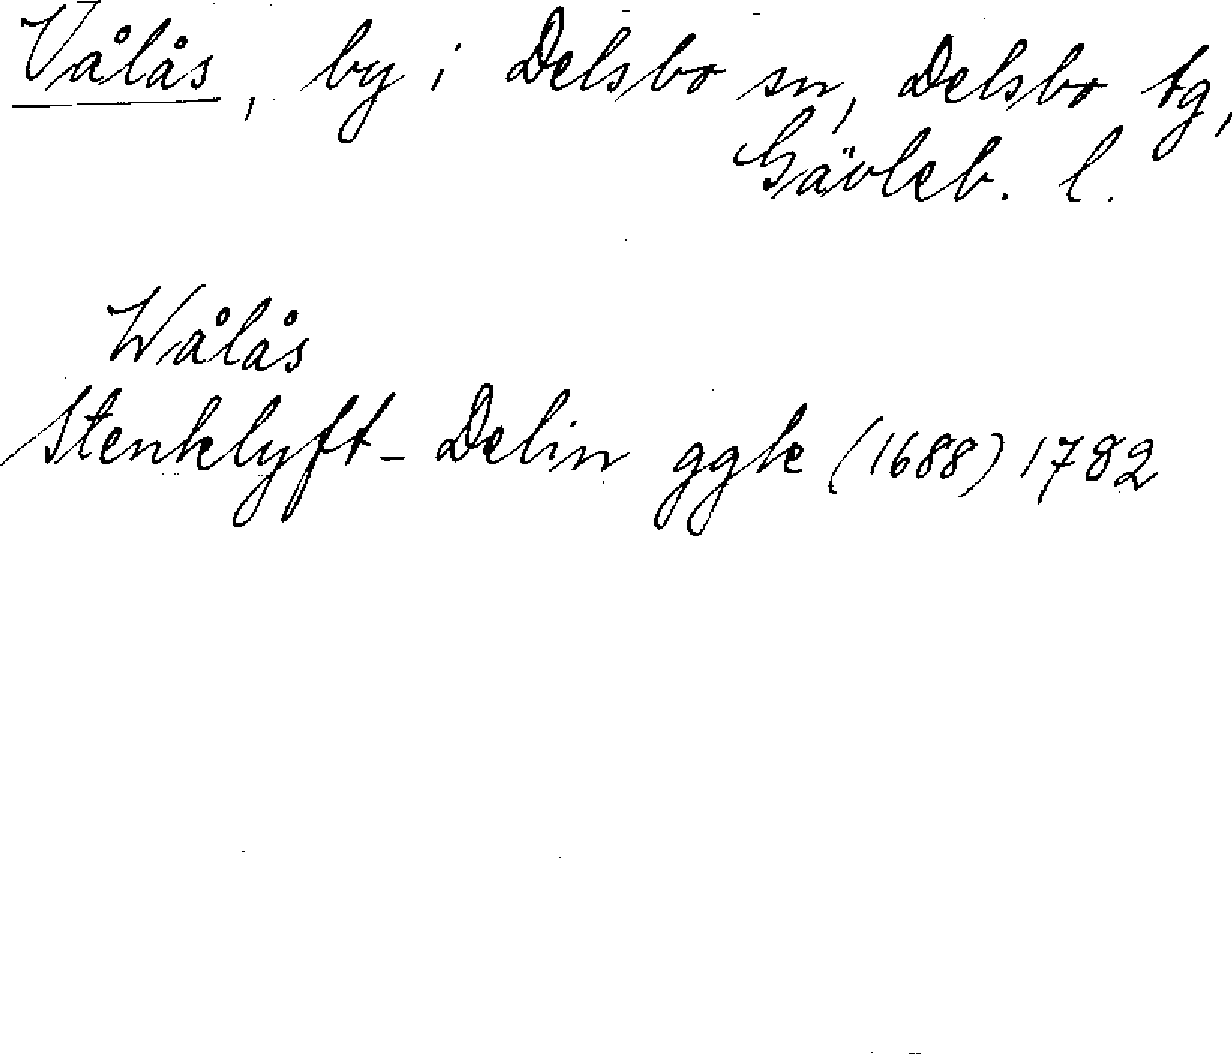 Vålås, by i Delsbo sn, Delsbo tg,
Gävleb. l.
Wålås
Stenklyft - Delin ggk (1688) 1782